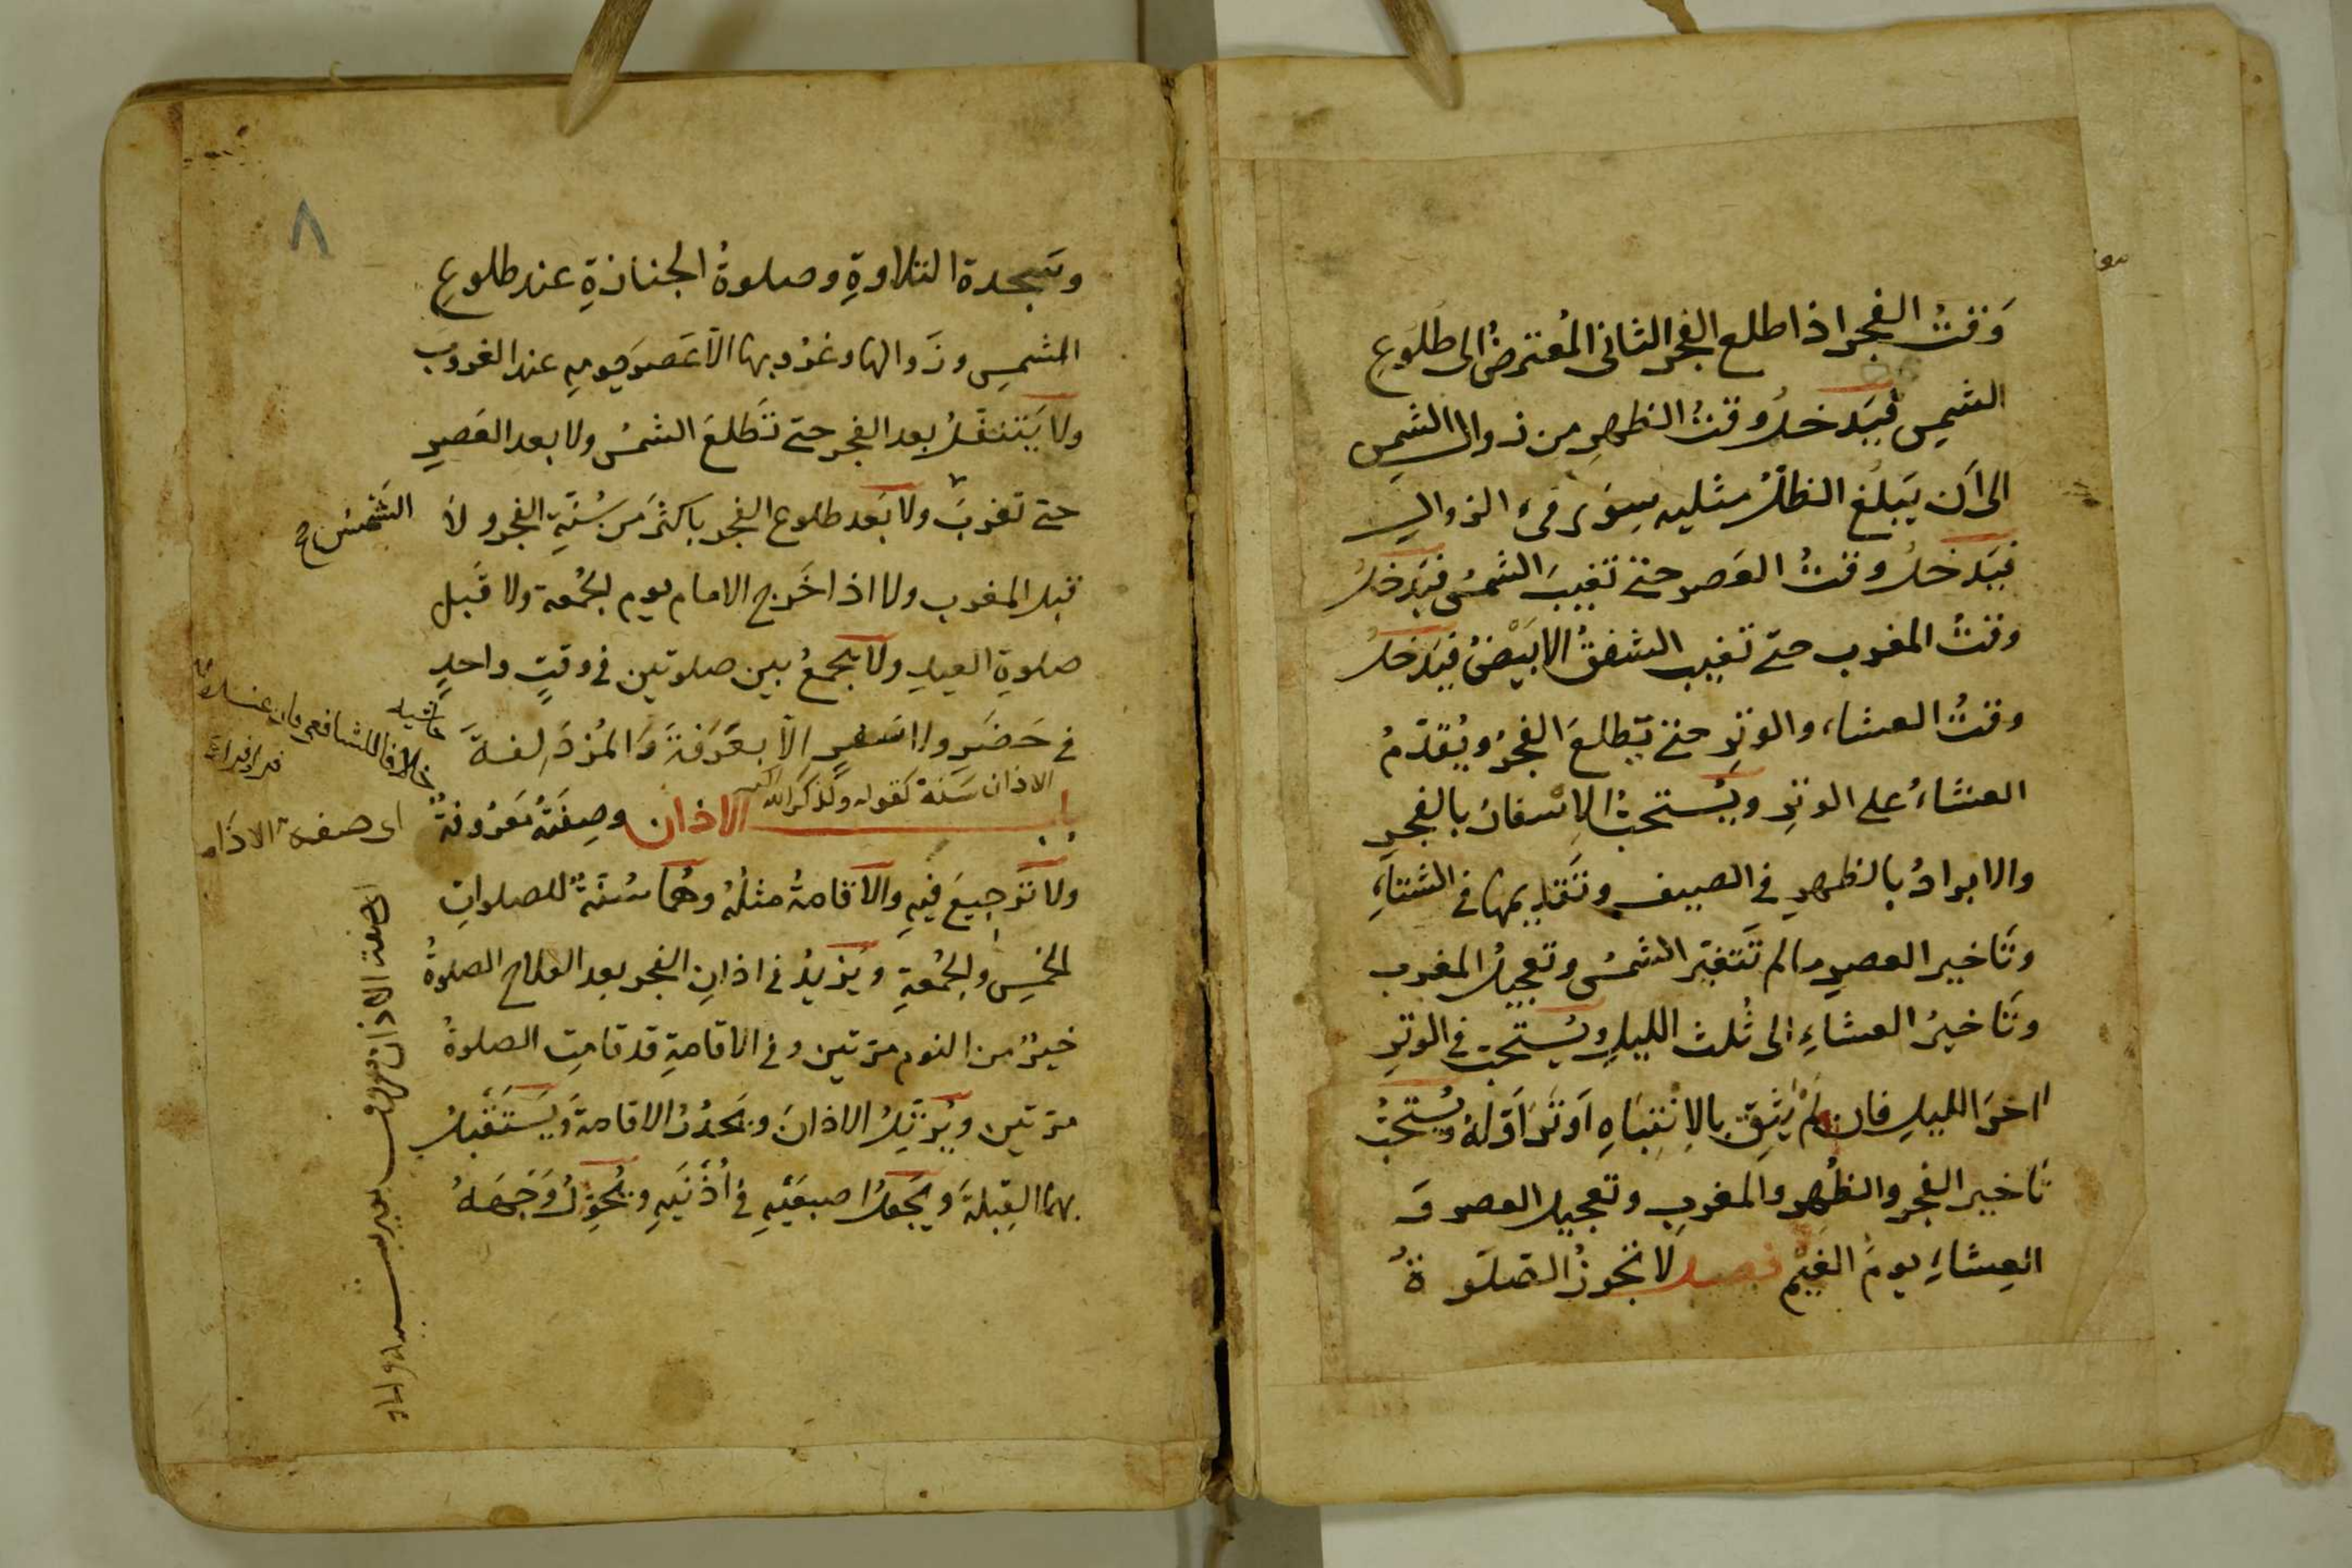 وَقتُ الفجر اذا طلع الفجر الثانى المُعترضُ الى طلُوعِ
الشمسِ فيَدخلُ وقتُ الظهرِ من زوال الشمسِ
الى اَن يَبلُغ الظلُّ مثليه سِوَى فىء الزوالِ
فيَدخلُ وقتُ العَصر حتى تغيبَ الشمسُ فيَدخلُ
وقتُ المغرب حتّى تغيب الشفقُ الابيَضُ فيَدخلُ
وقتُ العشاء والوترِ حتى يَطلعَ الفجرُ ويُقدّمُ
العشاءُ على الوترِ ويُستحبُّ الاِسْفارُ بالفجرِ
والابرادُ بالظهرِ فى الصيف وتَقديمها فى الشتاءِ
وتَاخير العصرِ مالم تَتغيّر الشمسُ وتعجيلُ المغرب
وتَاخيرُ العشاءِ الى ثُلث الليلِ ويُستحبّ فى الوترِ
اخرَ الليلِ فان لَمْ يَثِقْ بالاِنْتِبَاهِ اَوتَرَ اَوّلهُ ويُستحبُّ
تَاخير الفجر والظُهرِ والمغربِ وتعجيل العصر وَ
العِشاءِ يومَ الغَيْم فصل لا تجُوزُ الصّلَوةُ
٨
وسَجدة التلاوةِ وصلوةُ الجنازةِ عند طلوعِ
الشمسِ وزَوالها وغرُوبها الاّ عَصرَ يومِه عند الغروب
ولا يَتنفّلُ بعد الفجر حتّى تَطلعَ الشمسُ ولا بعد العَصرِ
حتّى تغربَ ولا بَعد طلوع الفجر باكثرَ من سُنّةِ الفجر ولا
الشَمسُ صح
قبل المغرب ولا اذا خَرج الامام يوم الجُمعة ولا قَبل
صلوةِ العيدِ ولا يجمعُ بين صلوتين فى وقتٍ واحدٍ
فى حَضَرٍ ولا سَفرٍ الاّ بعَرَفةَ وَالمُزدَلِفةَ
حاشيه
خلافا للشافعى
الاذان سَنة كقوله ولذكر الله اكبر
باب الاذان وصِفَتُهُ مَعرُوفةٌ
اى صفة الاذان
ولا تَرجيعَ فيهِ والاقامةُ مثلُهُ وهُما سُنّةٌ للصلواتِ
الخمسِ والجُمُعةِ ويَزيدُ فى اذانِ الفجر بعد الفلاح الصلوةُ
خيرٌ من النوم مرّتين وفى الاقامةِ قد قامتِ الصلوةُ
مرّتين ويُرتّلُ الاذانَ ويَحدُرُ الاقامةَ ويَستَقبلُ
بهما القِبلةَ ويَجعلُ اصبعَيْهِ فى اُذُنَيهِ ويُحوّلُ وَجهَهُ